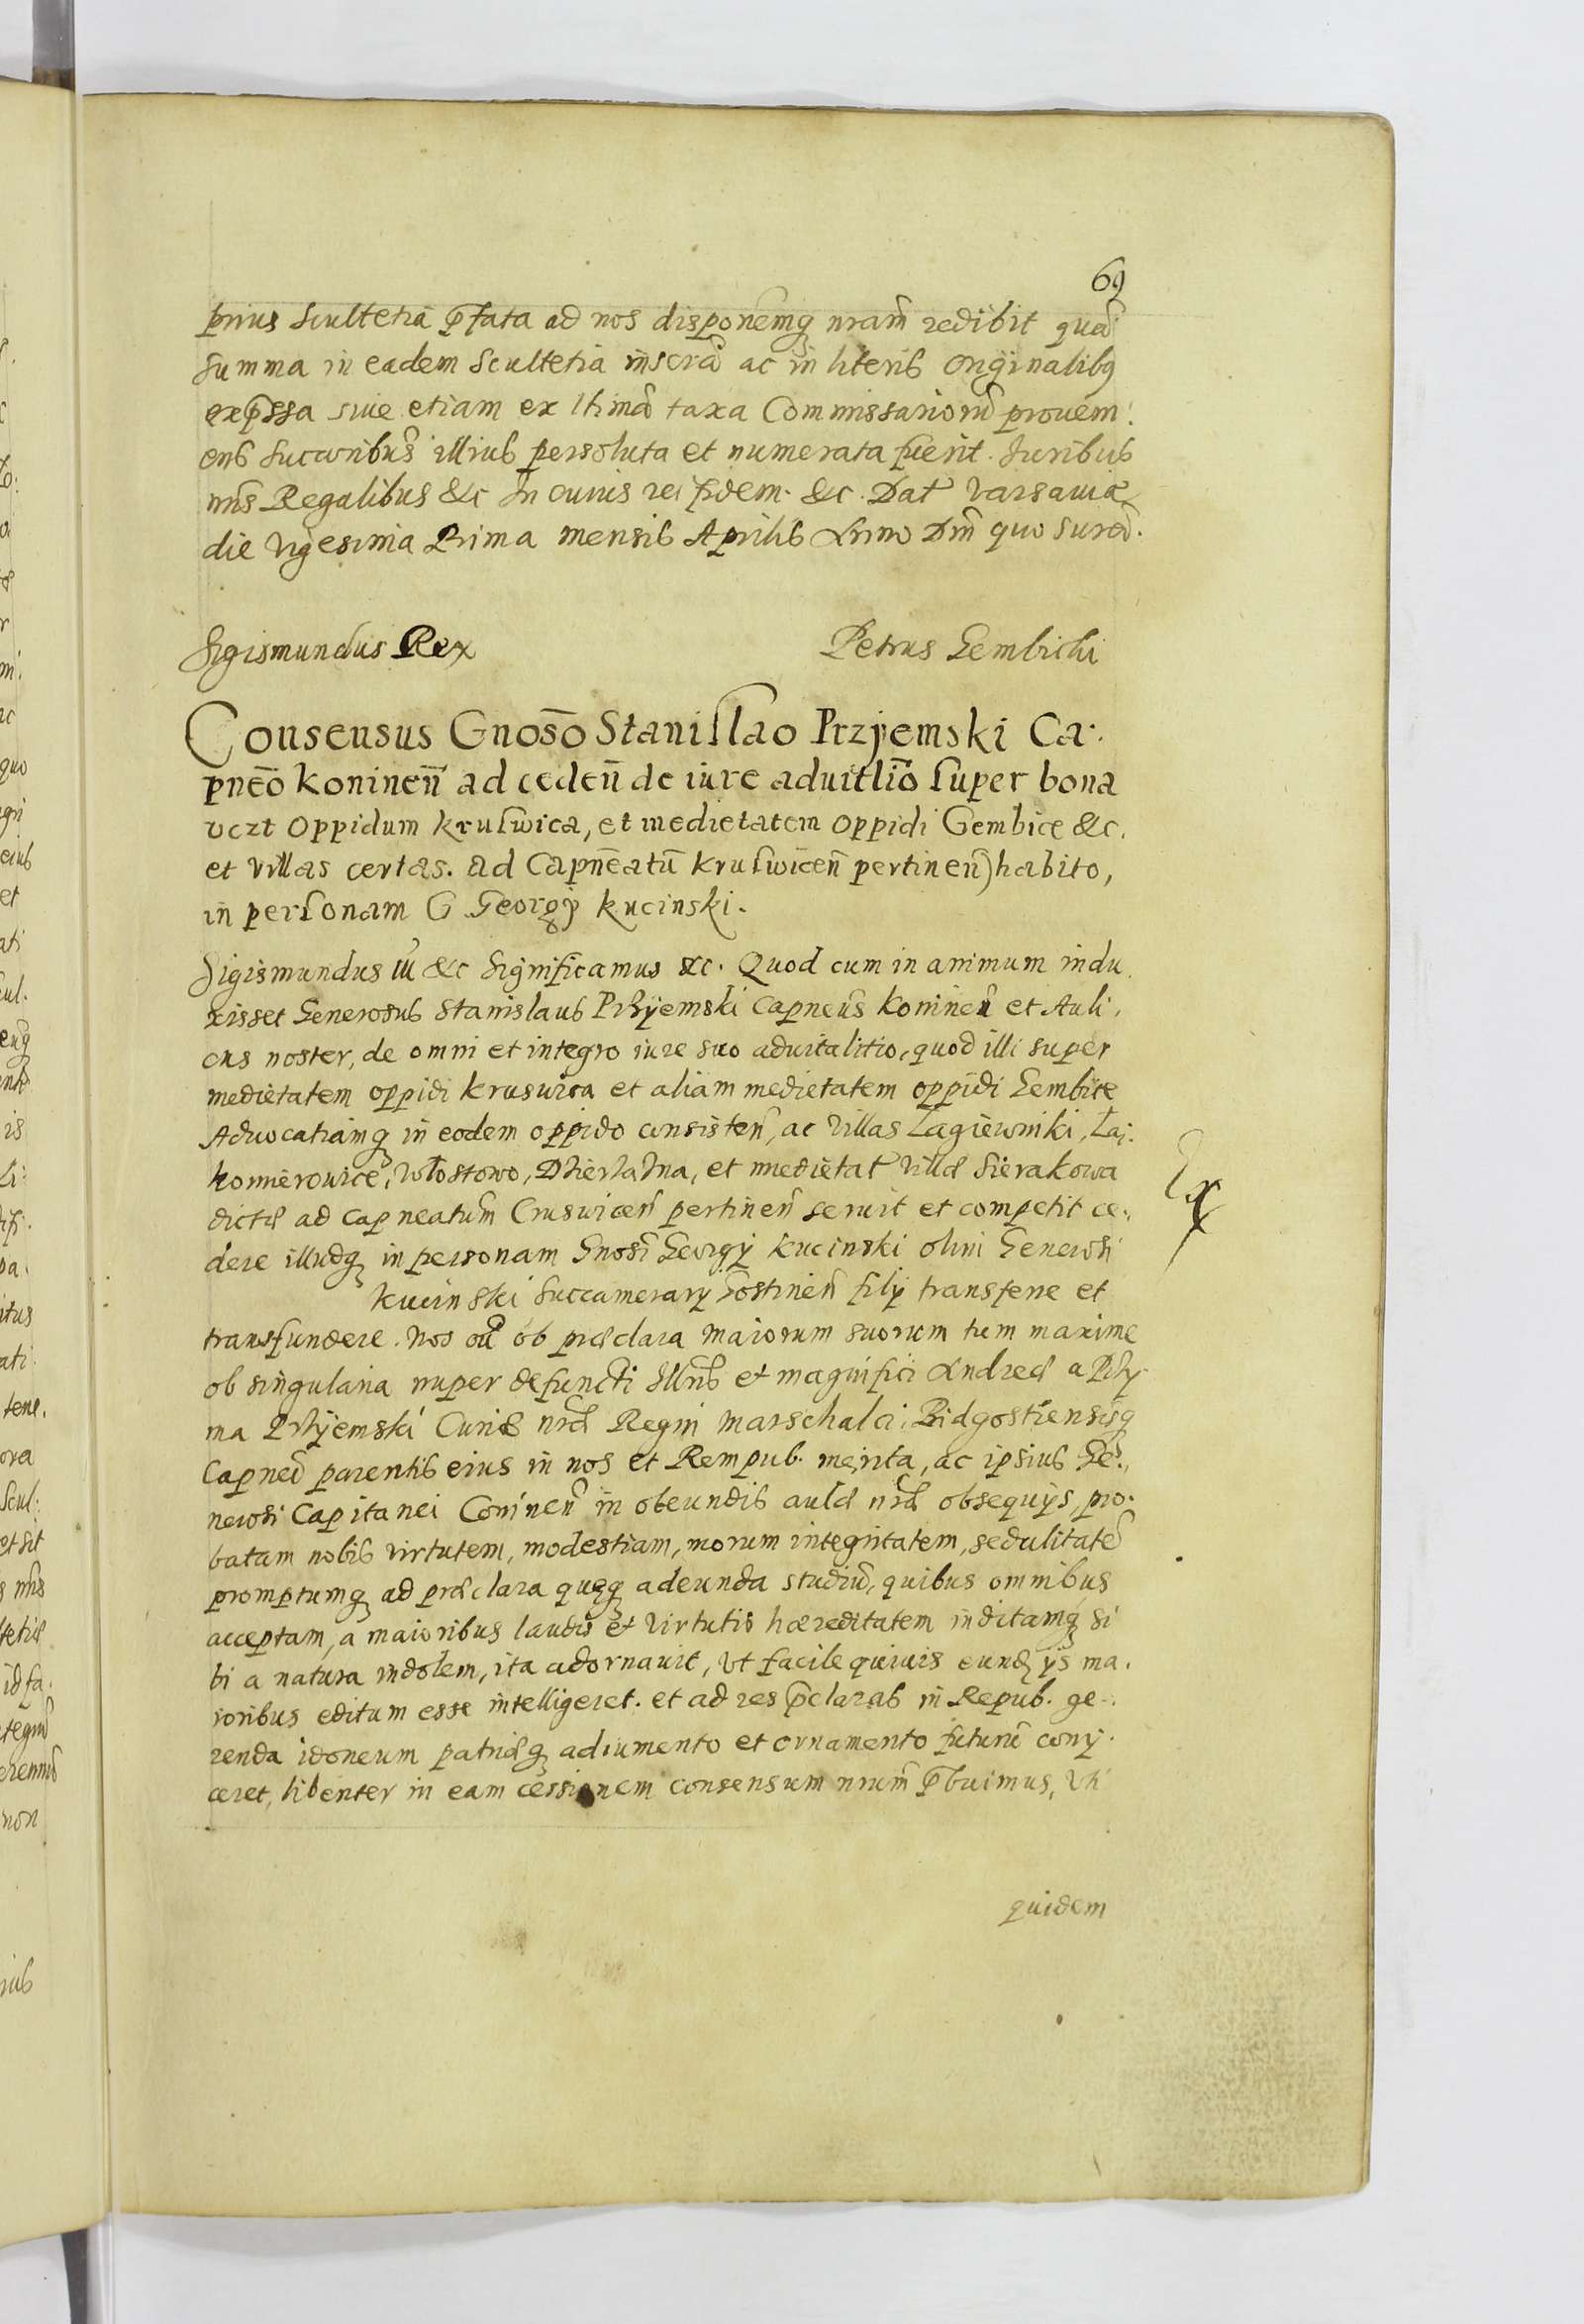 69
prius Scultetia p̃fata ad nos disponemq̃ nram̃ redibit quã
summa in eadem Scultetia inscrã ac in literis originalibq
exp̃ssa siue etiam ex ltimã taxa Commissariorũ prouem:
ens succoribus illius persoluta et numerata fuerit. Iuribus
nr̃is Regalibus &c In cuius rei fidem. &c. Dat Varsauiæ
die Vigesima Prima mensis Aprilis Anno Dm̃ quo supra.
Sigismundus Rex
Petrus Gembicki
Consensus Gnosō Stanislao Przyiemski Ca:
pneō Koninen̄ ad ceden̄ de iure aduitliō super bona
vczt Oppidum Kruswica, et medietatem Oppidi Gembice &c.
et Villas certas. ad Capn̄eatũ Kruswicen̄ pertinen̄) habito,
in personam G Georgÿ Kucinski.
Sigismundus IIĨ &c Significamus &c. Quod cum in animum indu
xisset Generosus Stanislaus Przÿemski Capneũs Koninen̄ et Auli,
cus noster, de omni et integro iure suo aduitalitio, quod illi super
medietatem oppidi Kruswica et aliam medietatem oppidi Gembice
Aduocatiamq̃ in eodem oppido consisten̄, ac Villas Łagiewniki, Łai.
komierowice, Włostowo, Dzierzazna, et medietat Villæ Sierakowa
dictæ ad Capneatum̃ Cruswicen̄ pertinen̄ seruit et competit ce.,
dere illudq̃ in personam Gnosi Georgÿ Kucinski olim Generosi
Kucinski Succamerarÿ Gostinen̄ filÿ transferre et
transfundere. Nos oũ ob præclara maiorum suorum tum maxime
ob singularia nuper defuncti Illr̃is et magnifici Andreæ a Przy
ma Przyiemski Curiæ nr̃æ Regni Marschalci, Bidgostiensisq̃
Capneĩ parentis eius in nos et Rempub. merita, ac ipsius Ge.,
nerosi Capitanei Coninen̄ in obeundis aulæ nr̃æ obsequÿs, pro.
batam nobis virtutem, modestiam, morum integritatem, sedulitatẽ
promptumq̃ ad præclara quęq̃ adeunda studiũ, quibus omnibus
acceptam, a maioribus laudis et virtutis hæreditatem inditamq̃ si
bi a natura indolem, ita adornauit, Vt facile quiuis eund ÿs ma.
ioribus editum esse intelligeret. et ad res p̃claras in Repub. ge.
renda idoneum patriæq̃ adiumento et ornamento futurũ conÿ.
ceret, libenter in eam cessionem consensum nrum̃ p̃buimus, Vti
quidem